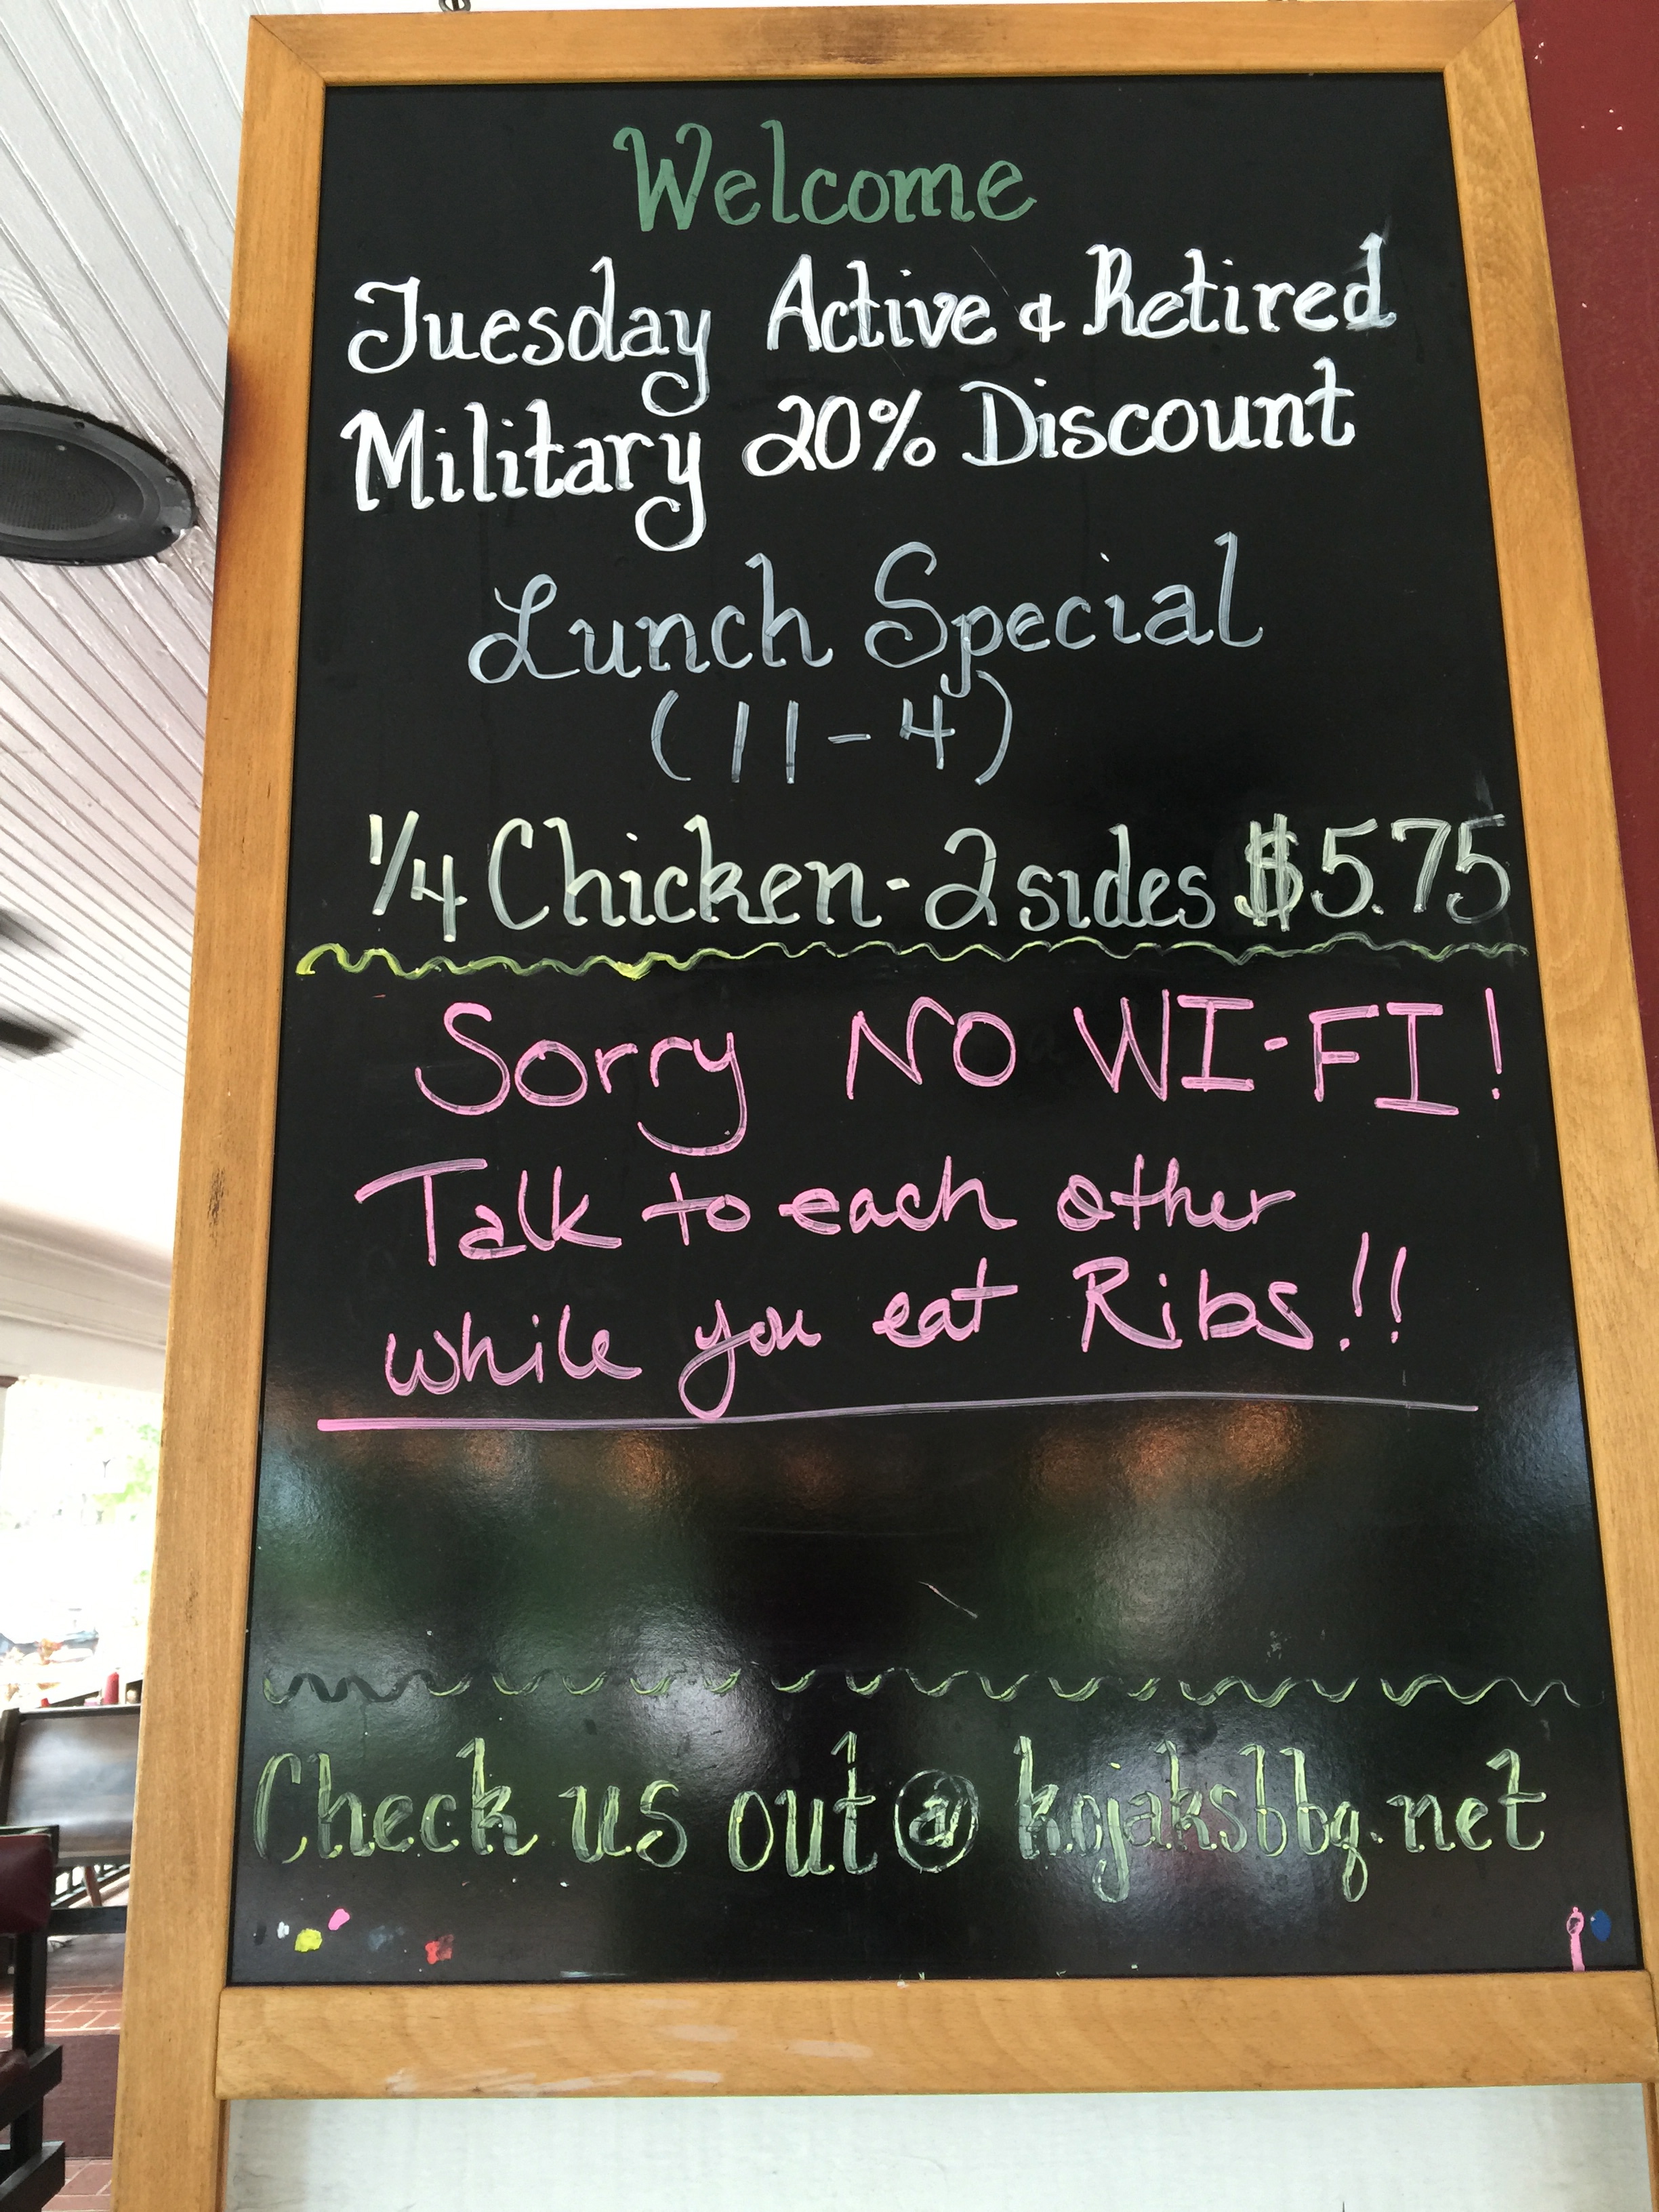 Welcome
Tuesday Active & Retired
Military 20% Discount
Lunch Special
(11-4)
1/4 Chicken-2 sides $5.75
Sorry NO WI-FI!
Talk to each other
while you eat Ribs!!
Check us out @ kojaksbbq.net